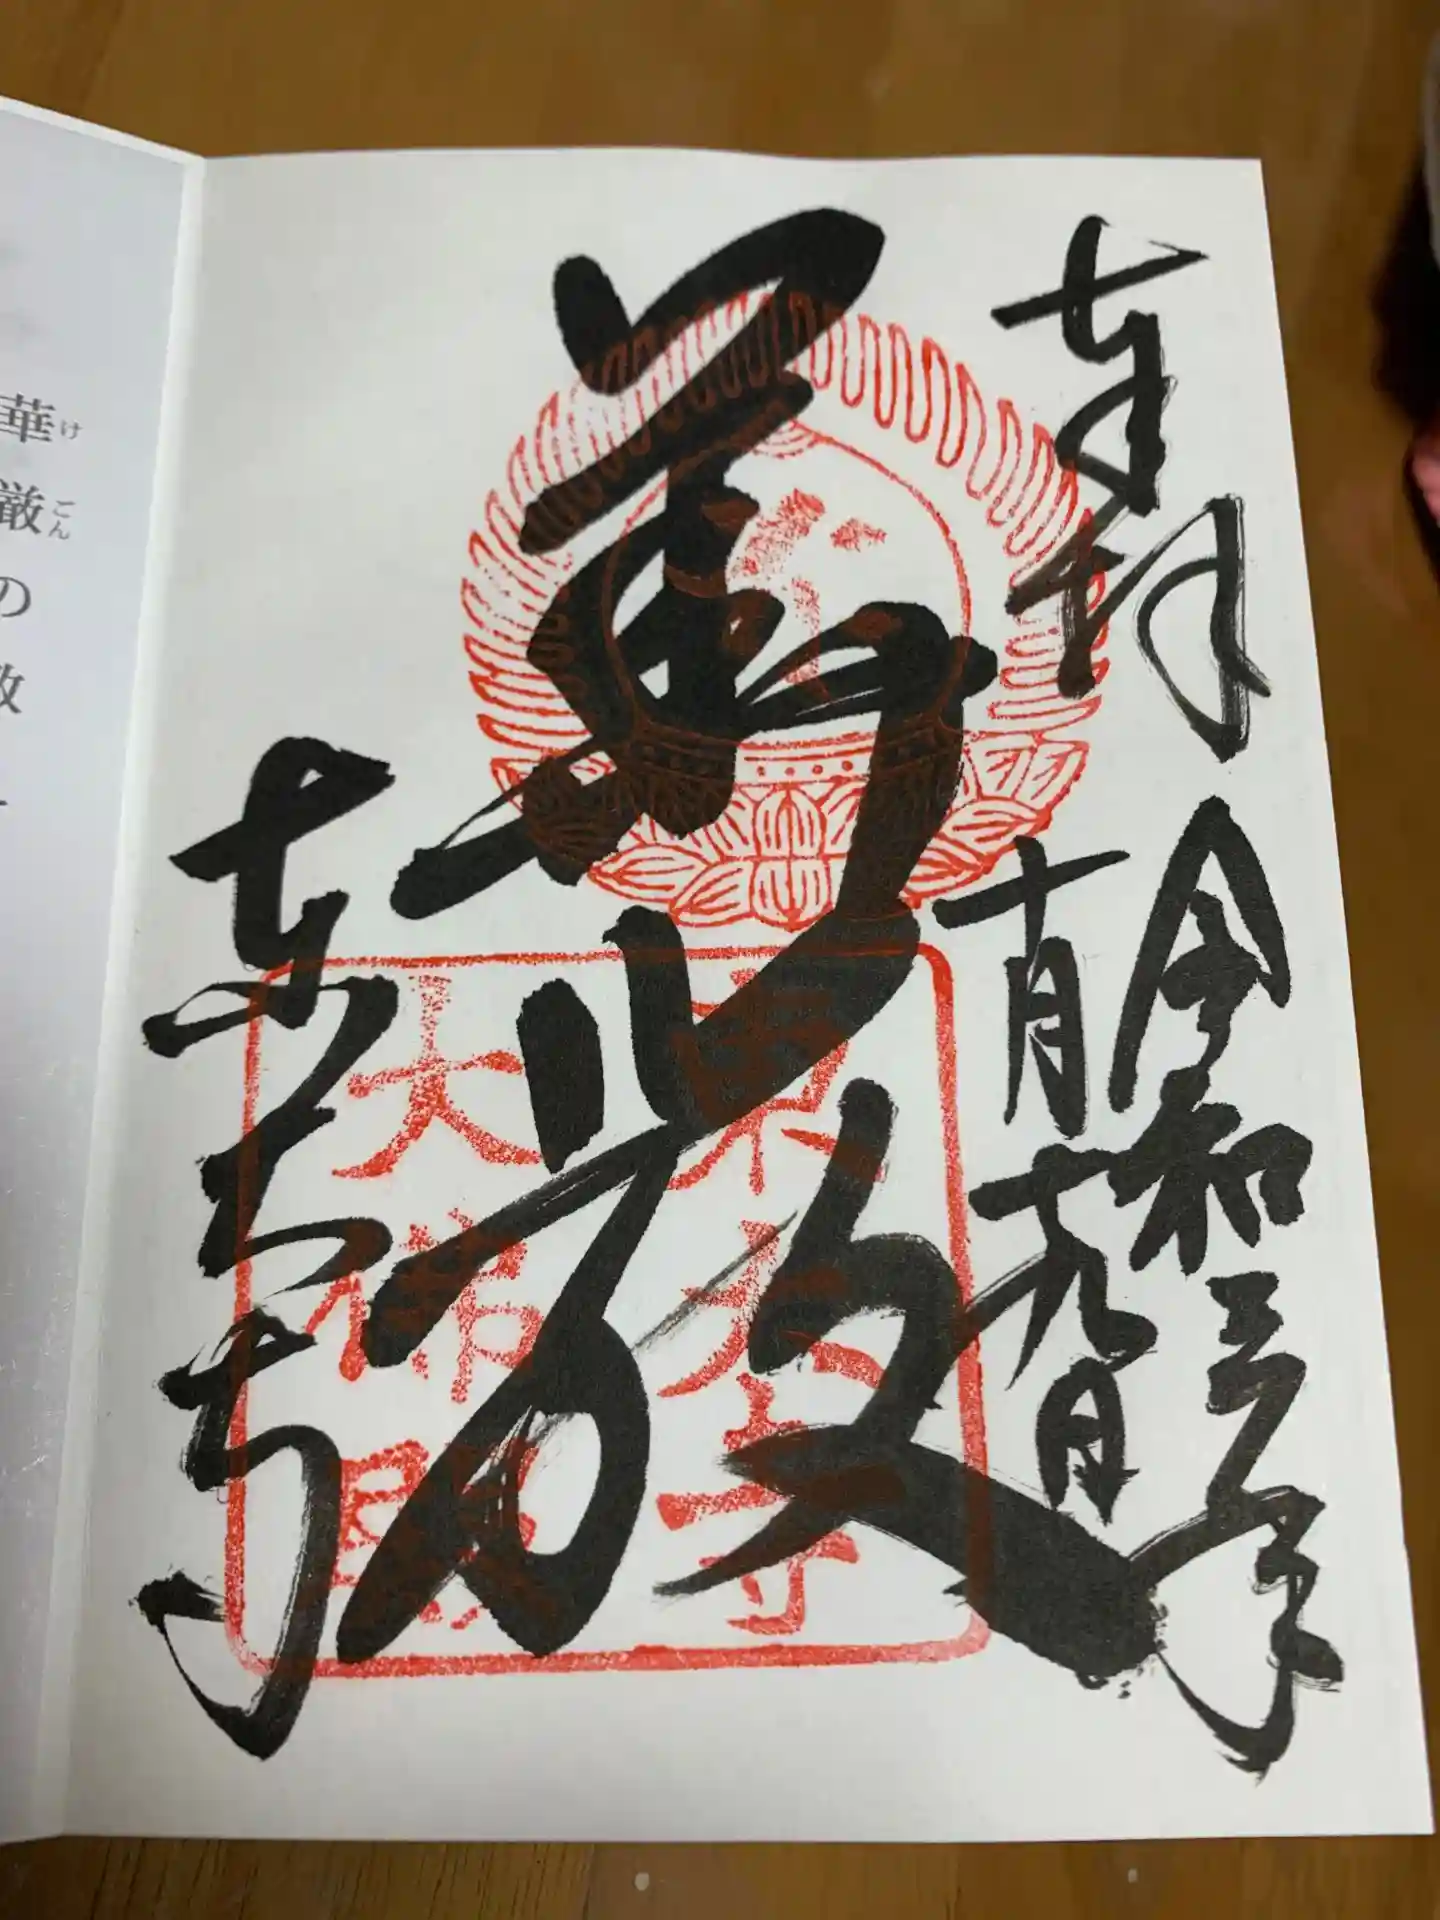 奉拝
令和三年
十月十九日
華嚴
東大寺
東大寺
大佛殿
華厳の教
けごん